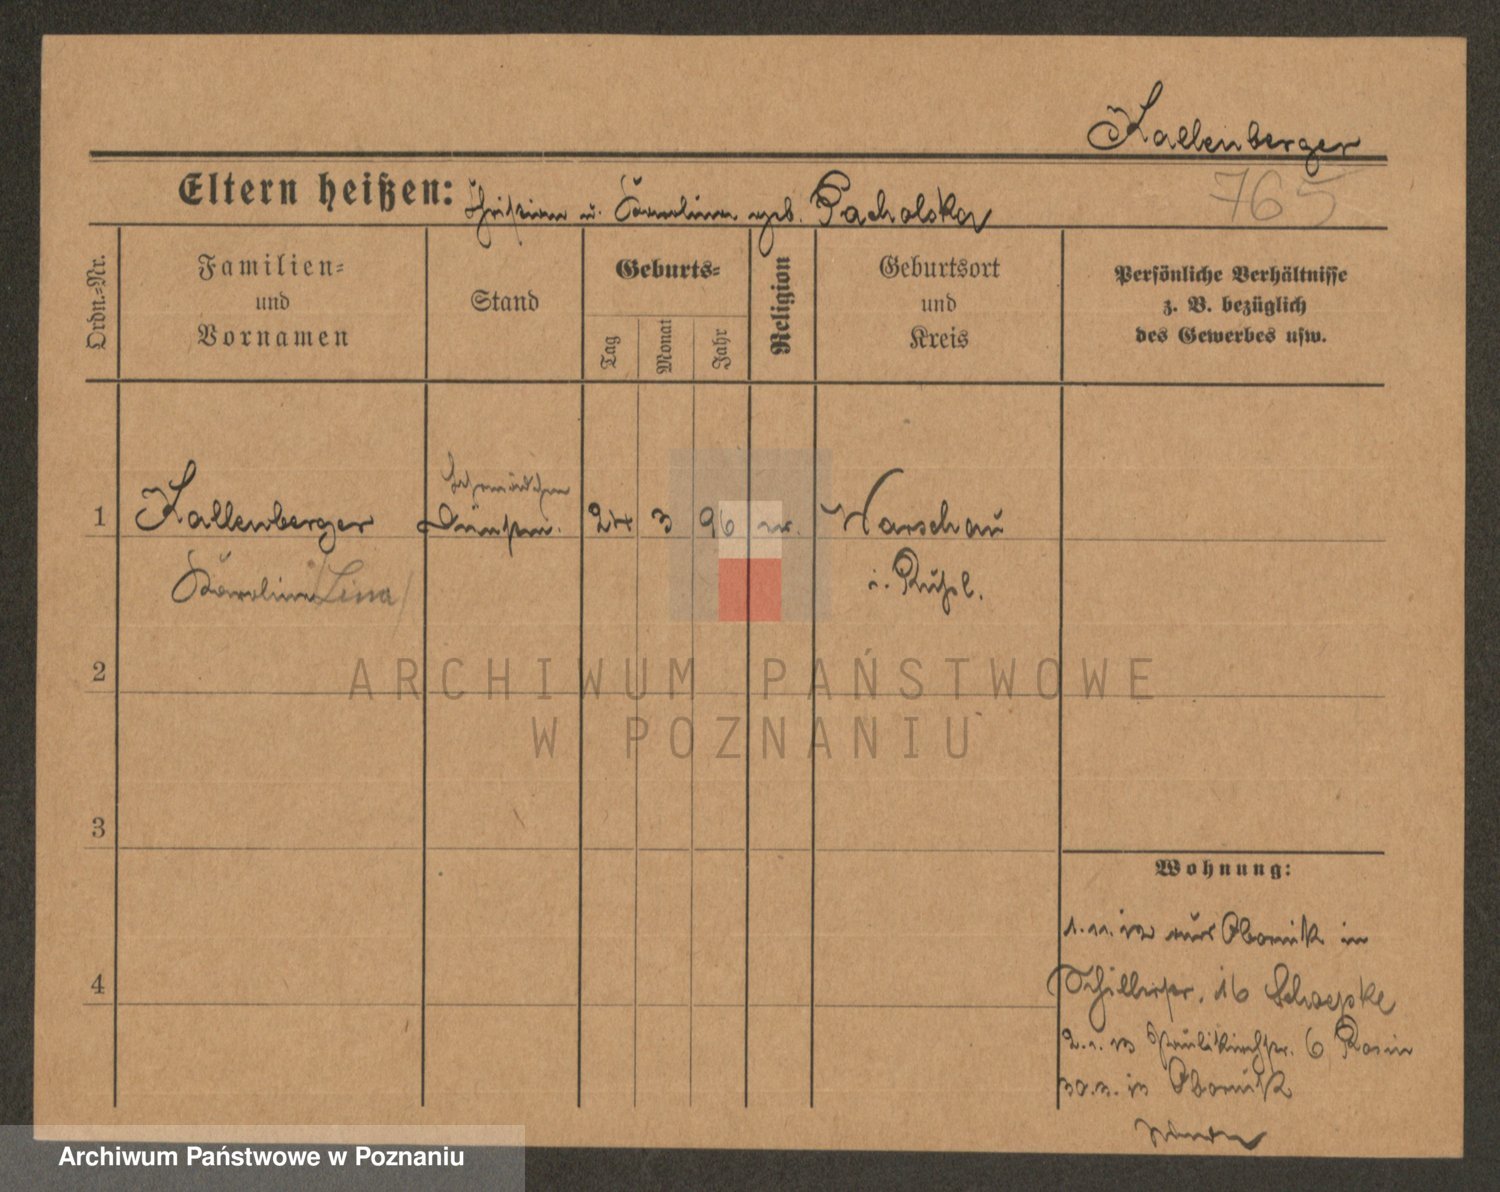 Kallenberger
765
Eltern heißen: Christian u. Karoline geb. Pacholska
Ordn.-Nr.
Familien-
und
Vornamen
Stand
Geburts-
Tag
Monat
Jahr
Religion
Geburtsort
und
Kreis
Persönliche Verhältnisse
z. B. bezüglich
des Gewerbes usw.
1 Kallenberger 24 3 96 Warschau
Karoline /Lina/ i. Rußl.
2
3
4
ARCHIWUM PAŃSTWOWE
W POZNANIU
Wohnung:
1.11.12 aus Obornik in
Schillerstr. 16 Schoepke
2.1.13 Paulikirchstr. 6 Rosin
30.3.13 Obornik
Archiwum Państwowe w Poznaniu